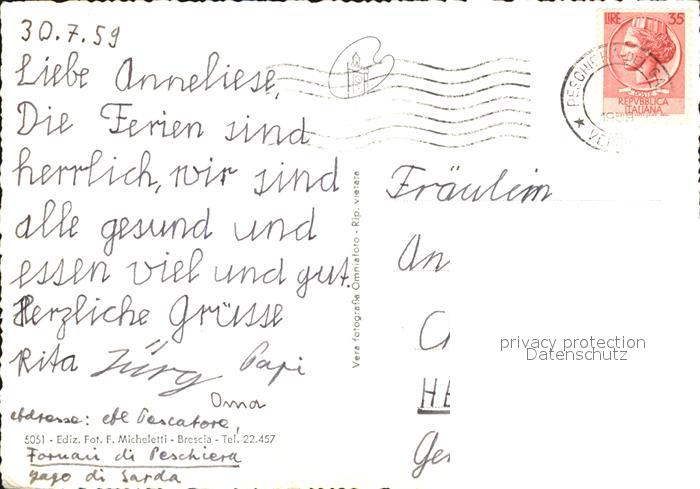 30.7.59
Liebe Anneliese,
Die Ferien sind
herrlich, wir sind
alle gesund und
essen viel und gut.
Herzliche Grüsse
Rita Jürg Papi
Oma
Adresse: Al Pescatore,
5051 - Ediz. Fot. F. Micheletti - Brescia - Tel. 22.457
Fornaci di Peschiera
Lago di Garda
Vera fotografia Omniafoto - Rip. vietata
LIRE 35
POSTE
REPVBBLICA
ITALIANA
PESCHIERA DEL GA
★ VE
Fräulein
An
C
HE
Ge
privacy protection
Datenschutz